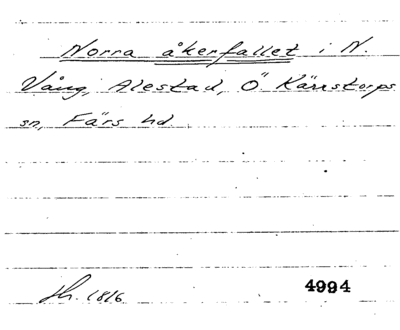 Norra åkerfallet i N.
Vång, Alestad, Ö Kärrstorps
sn, Färs hd
1816
4994